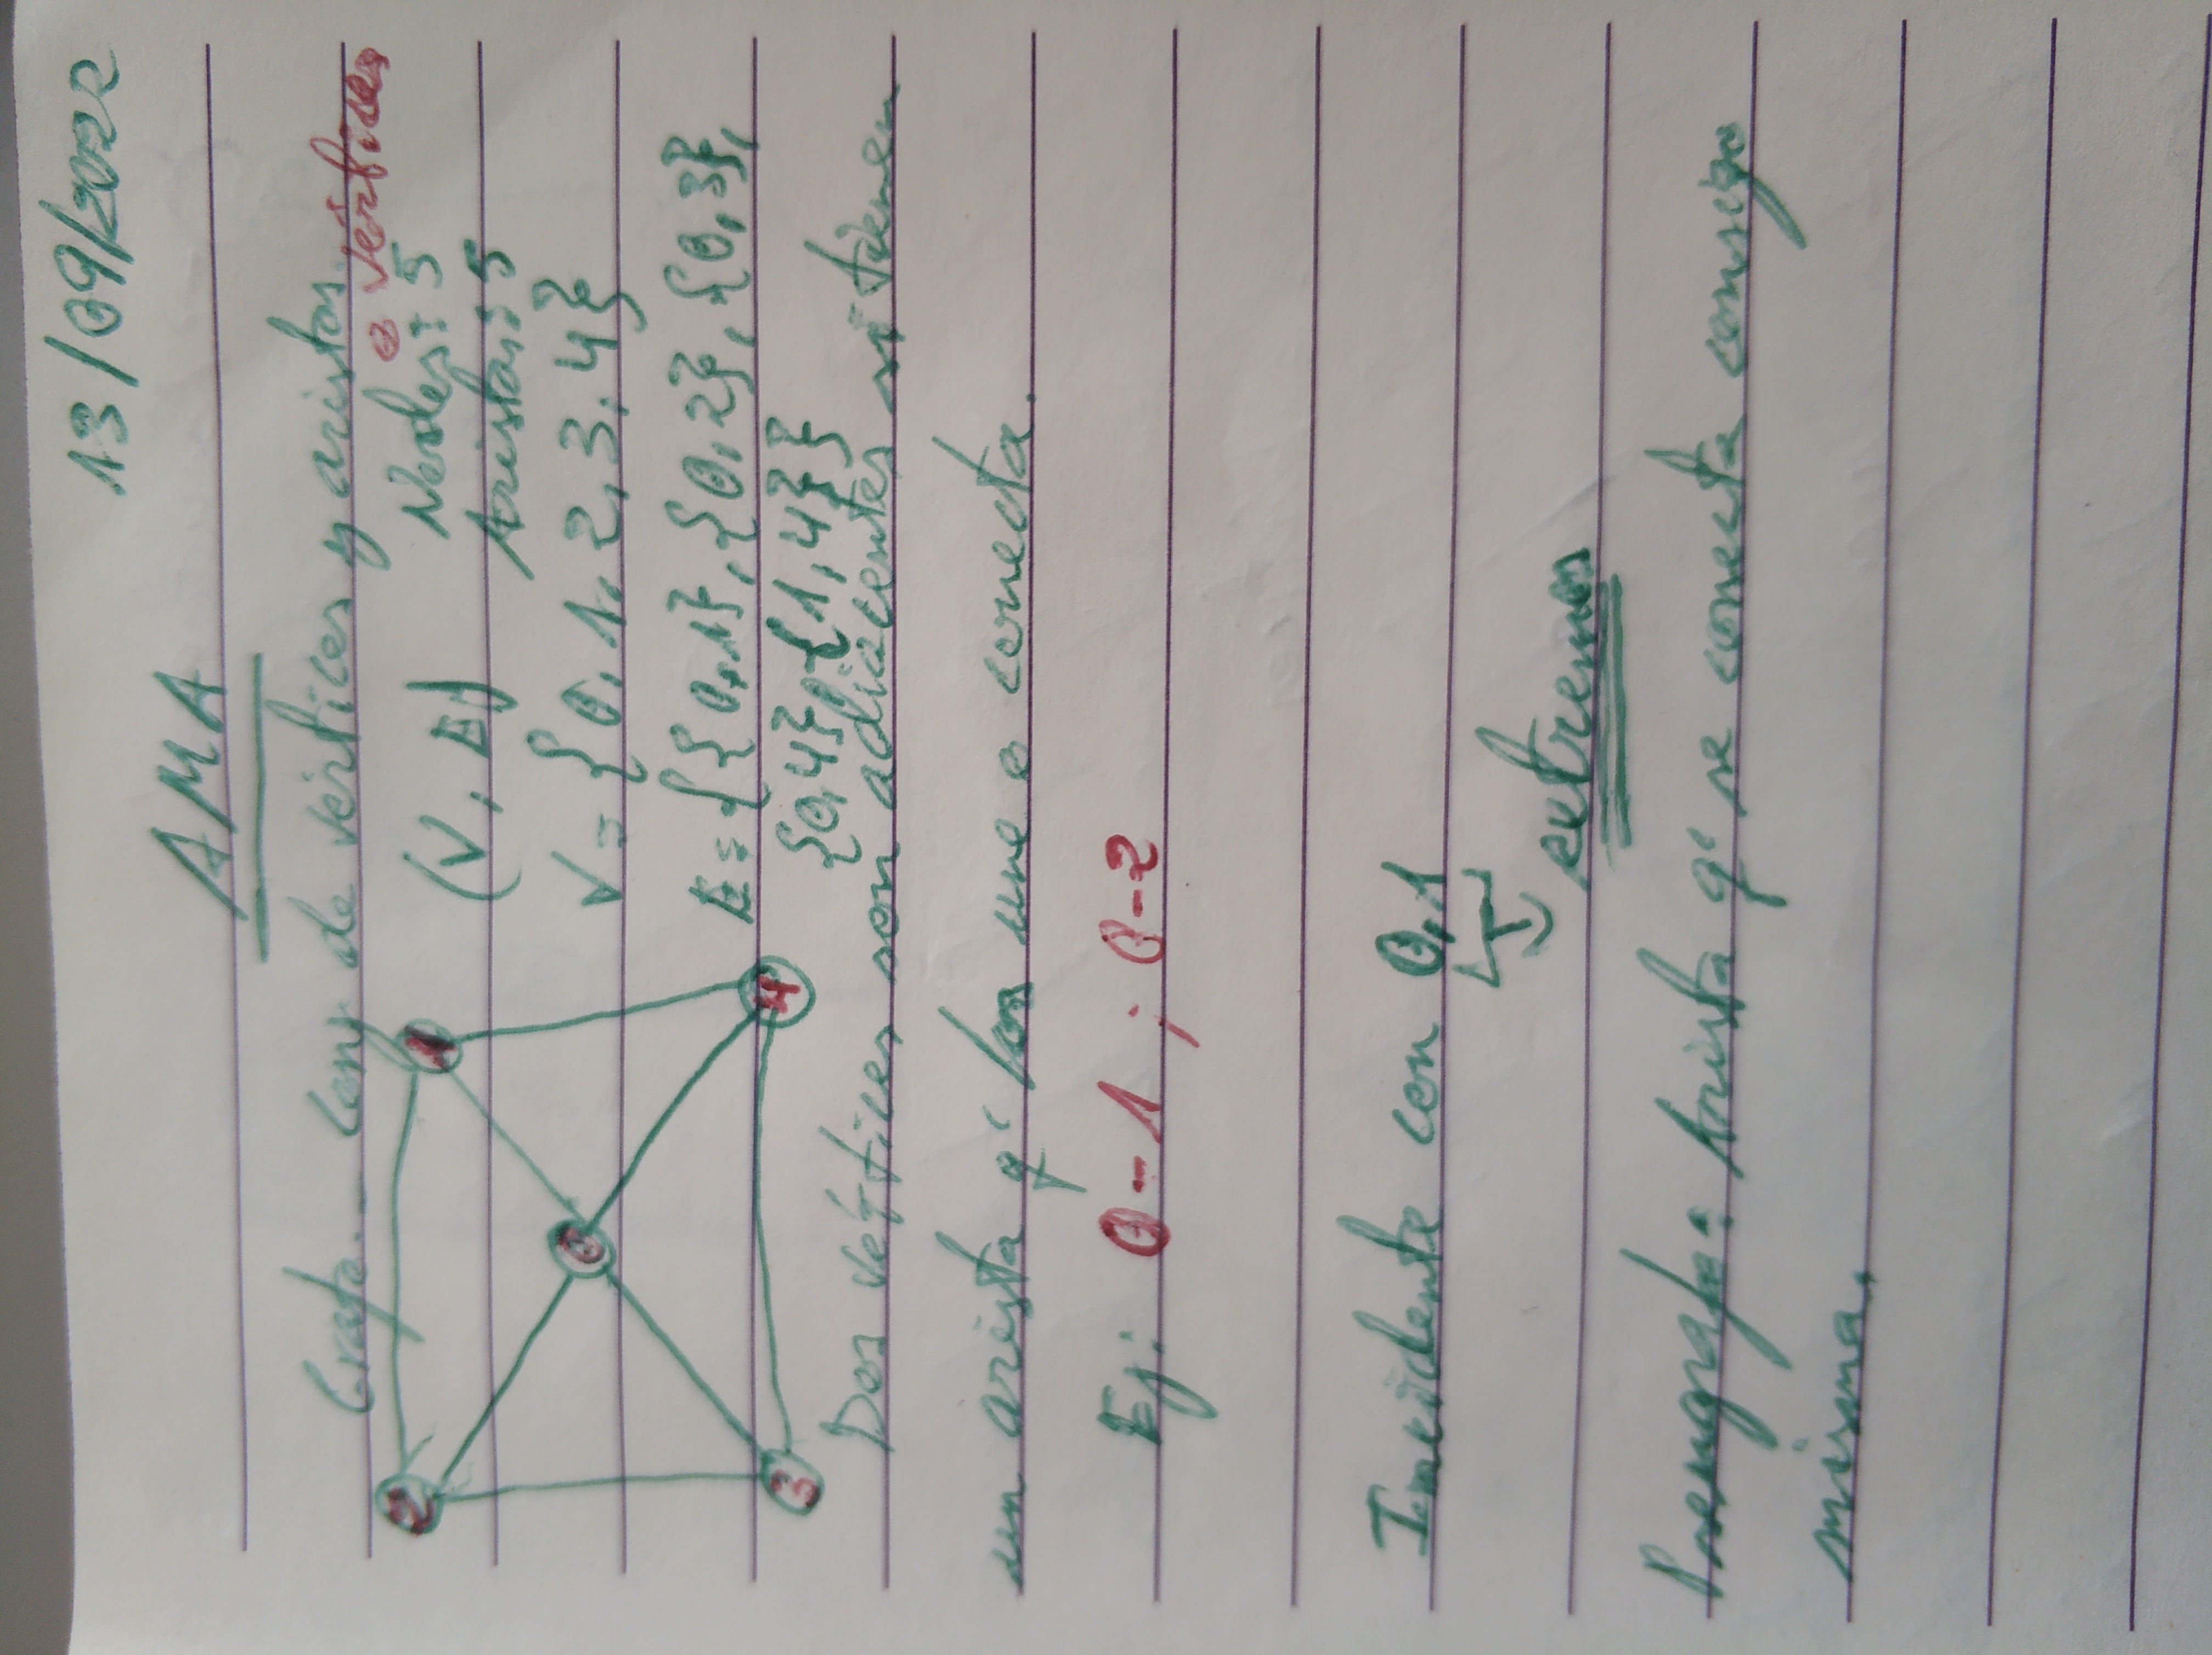 13/09/2022
AMA
Grafo.- Conj. de vértices y aristas.
o vértices
2
1
0
3
4
(V, E)
Nodos: 5
Aristas: 5
V = {0, 1, 2, 3, 4}
E = {{0,1}, {0,2}, {0,3},
{0,4}, {1,4}}
Dos vértices son adiacentes si tienen
un arista q' los une o conecta.
Ej: 0-1 ; 0-2
Incidente con 0,1
extremos
Arista q' se conecta consigo
misma.